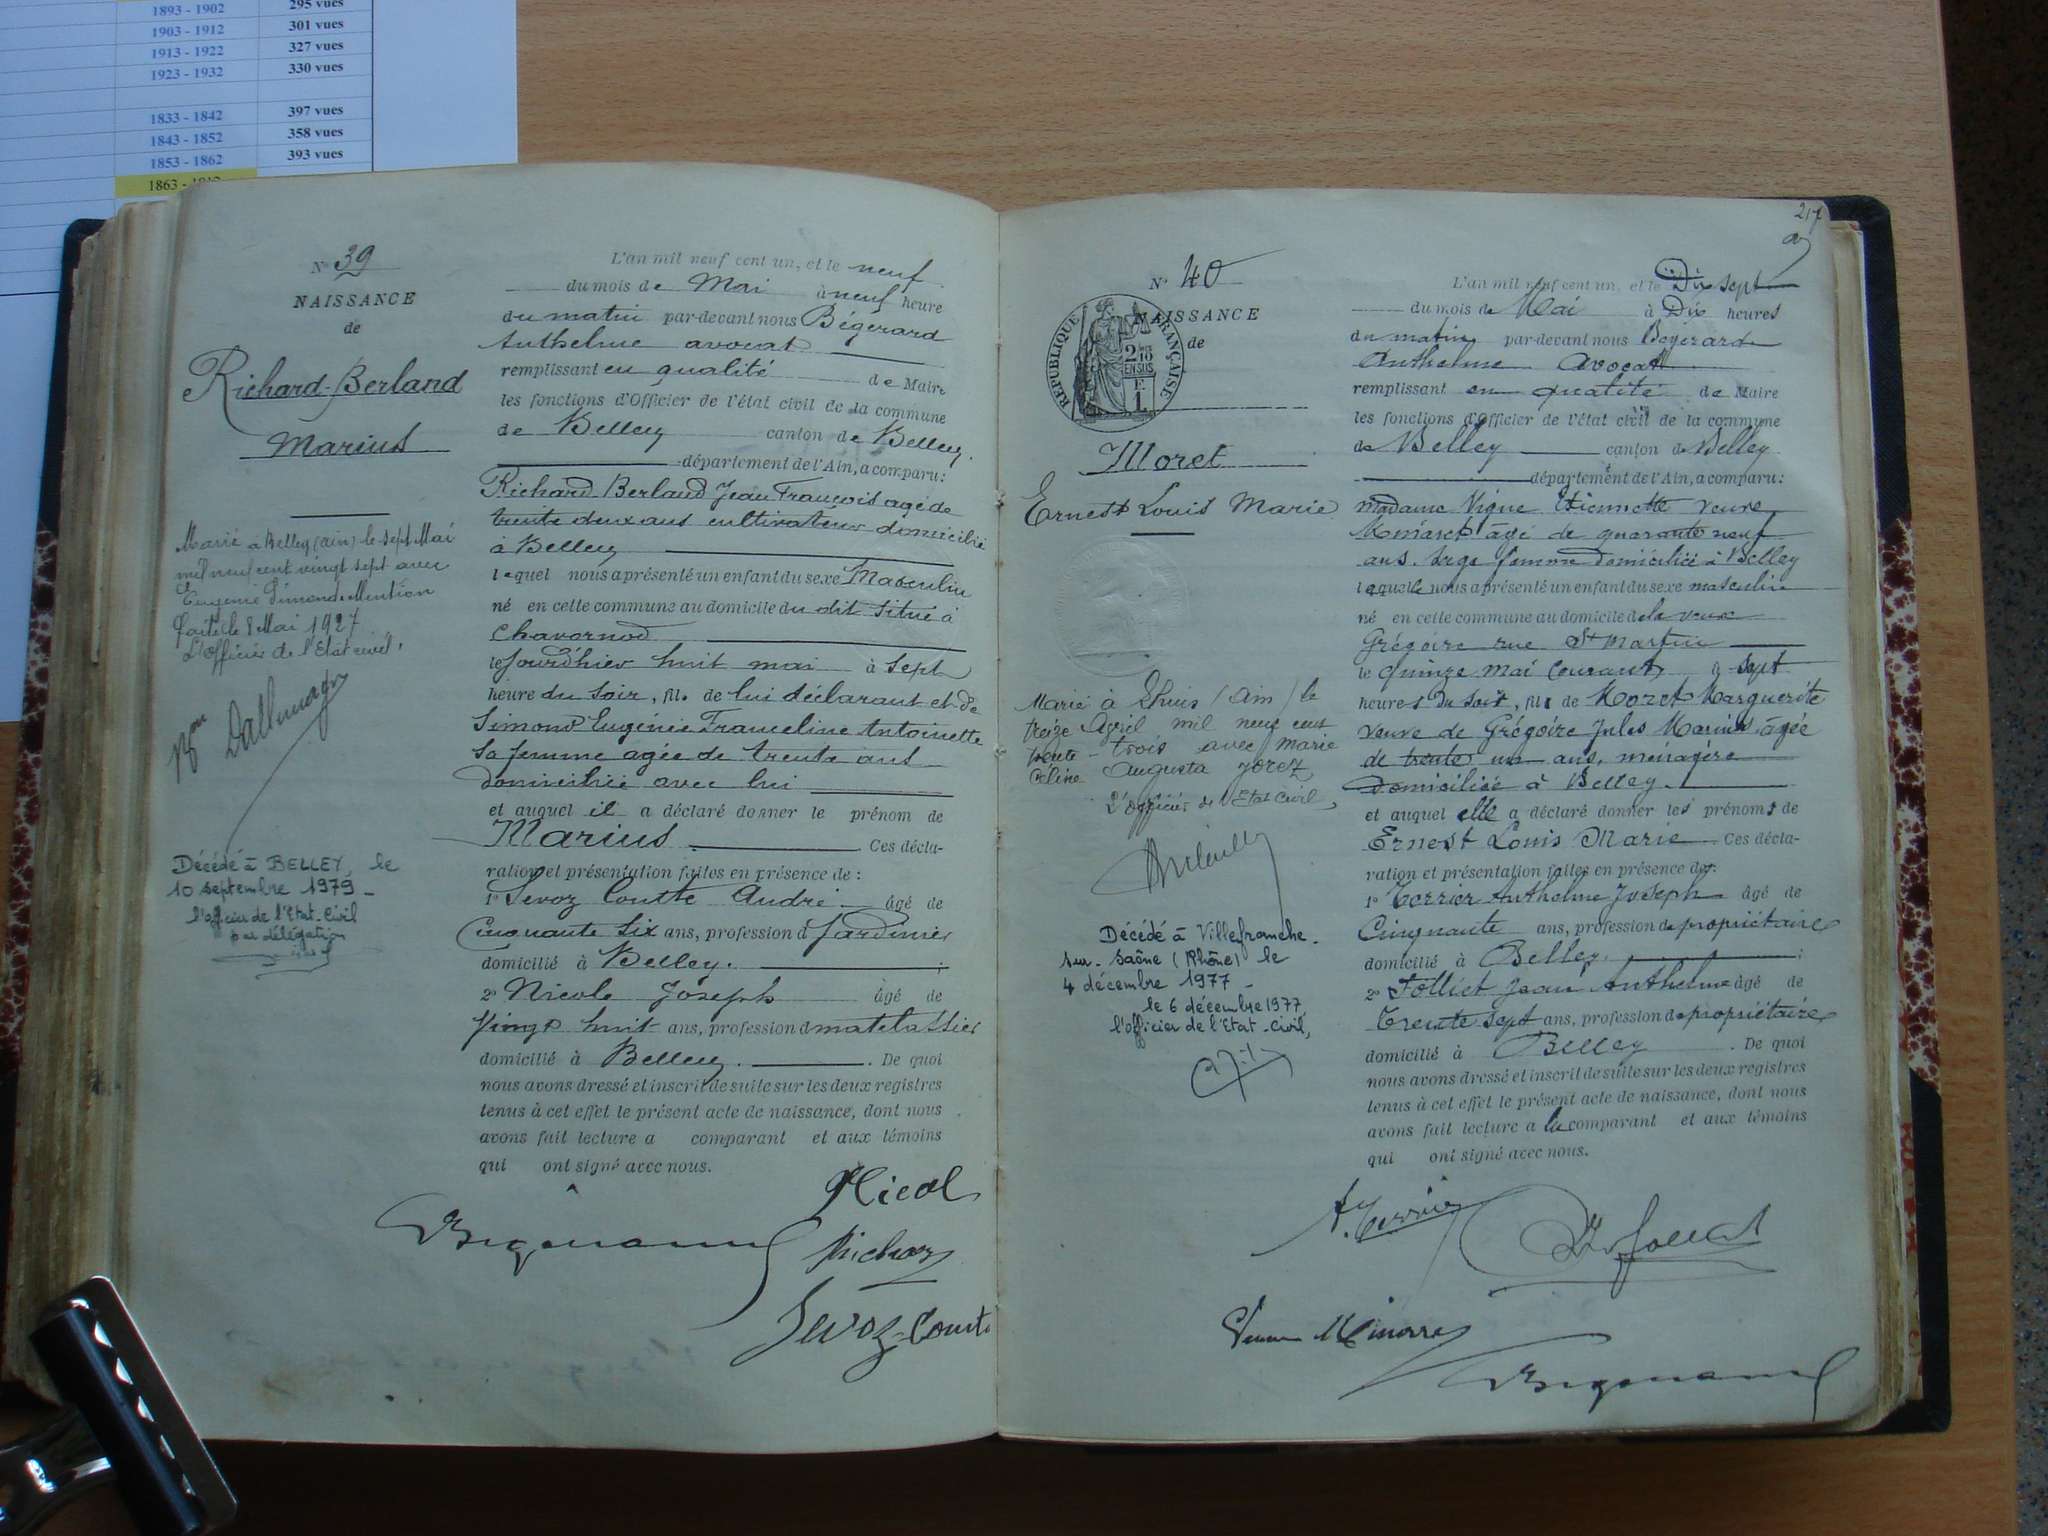 1893 - 1902 295 vues
1903 - 1912 301 vues
1913 - 1922 327 vues
1923 - 1932 330 vues
1833 - 1842 397 vues
1843 - 1852 358 vues
1853 - 1862 393 vues
1863 -
N° 39
NAISSANCE
de
Richard-Berland
Marius
Marié à Belley (ain) le sept Mai
mil neuf cent vingt sept avec
Eugénie Simond. Mention
faite le 8 Mai 1927
L'officier de l'Etat civil,
Décédé à BELLEY, le
10 septembre 1979 -
l'officier de l'Etat-Civil
par délégation
L'an mil neuf cent un, et le neuf
du mois de Mai à neuf heure
du matin par-devant nous Bégerard
Anthelme avocat
remplissant en qualité de Maire
les fonctions d'Officier de l'état civil de la commune
de Belley canton de Belley.
département de l'Ain, a comparu:
Richard-Berland Jean François agé de
trente deux ans cultivateur domicilié
à Belley
lequel nous a présenté un enfant du sexe Masculin
né en cette commune au domicile du dit situé à
Chavornod
le jourd'hier huit mai à sept
heure du soir, fils de lui déclarant et de
Simond Eugénie Franceline Antoinette
Sa femme agée de trente ans
domiciliée avec lui
et auquel il a déclaré donner le prénom de
Marius Ces décla-
ration et présentation faites en présence de :
1° Sevoz Coutte André âgé de
Cinquante six ans, profession d Jardinier
domicilié à Belley. ;
2° Nicole Joseph âgé de
Vingt huit ans, profession d matelassier
domicilié à Belley. . De quoi
nous avons dressé et inscrit de suite sur les deux registres
tenus à cet effet le présent acte de naissance, dont nous
avons fait lecture a comparant et aux témoins
qui ont signé avec nous.
Nicol
Richard
Sevoz-Coutte
217
N° 40
NAISSANCE
de
RÉPUBLIQUE FRANÇAISE
2/10
EN SUS
Moret
Ernest Louis Marie
Marié à Lhuis (Ain) le
treize Avril mil neuf cent
trente-trois avec Marie
Céline Augusta Jorez
L'officier de l'Etat Civil,
Décédé à Villefranche-
sur-Saône (Rhône) le
4 décembre 1977 -
le 6 décembre 1977,
l'officier de l'Etat-civil,
L'an mil neuf cent un, et le Dix sept
du mois de Mai à Dix heures
du matin par-devant nous Bégerard
Anthelme Avocat
remplissant en qualité de Maire
les fonctions d'Officier de l'état civil de la commune
de Belley canton de Belley
département de l'Ain, a comparu:
madame Vigne Etiennette veuve
âgé de quarante neuf
ans. sage femme domiciliée à Belley
laquelle nous a présenté un enfant du sexe masculin
né en cette commune au domicile de la veuve
Grégoire rue St Martin
le quinze mai courant à sept
heures du soir, fils de Moret Marguerite
veuve de Grégoire Jules Marius âgée
de trente un ans, ménagère
domiciliée à Belley.
et auquel elle a déclaré donner les prénoms de
Ernest Louis Marie Ces décla-
ration et présentation faites en présence de:
1° Terrier Anthelme Joseph âgé de
Cinquante ans, profession de propriétaire
domicilié à Belley. ;
2° Folliet Jean Anthelme âgé de
trente sept ans, profession de propriétaire
domicilié à Belley . De quoi
nous avons dressé et inscrit de suite sur les deux registres
tenus à cet effet le présent acte de naissance, dont nous
avons fait lecture a la comparant et aux témoins
qui ont signé avec nous.
A. Terrier